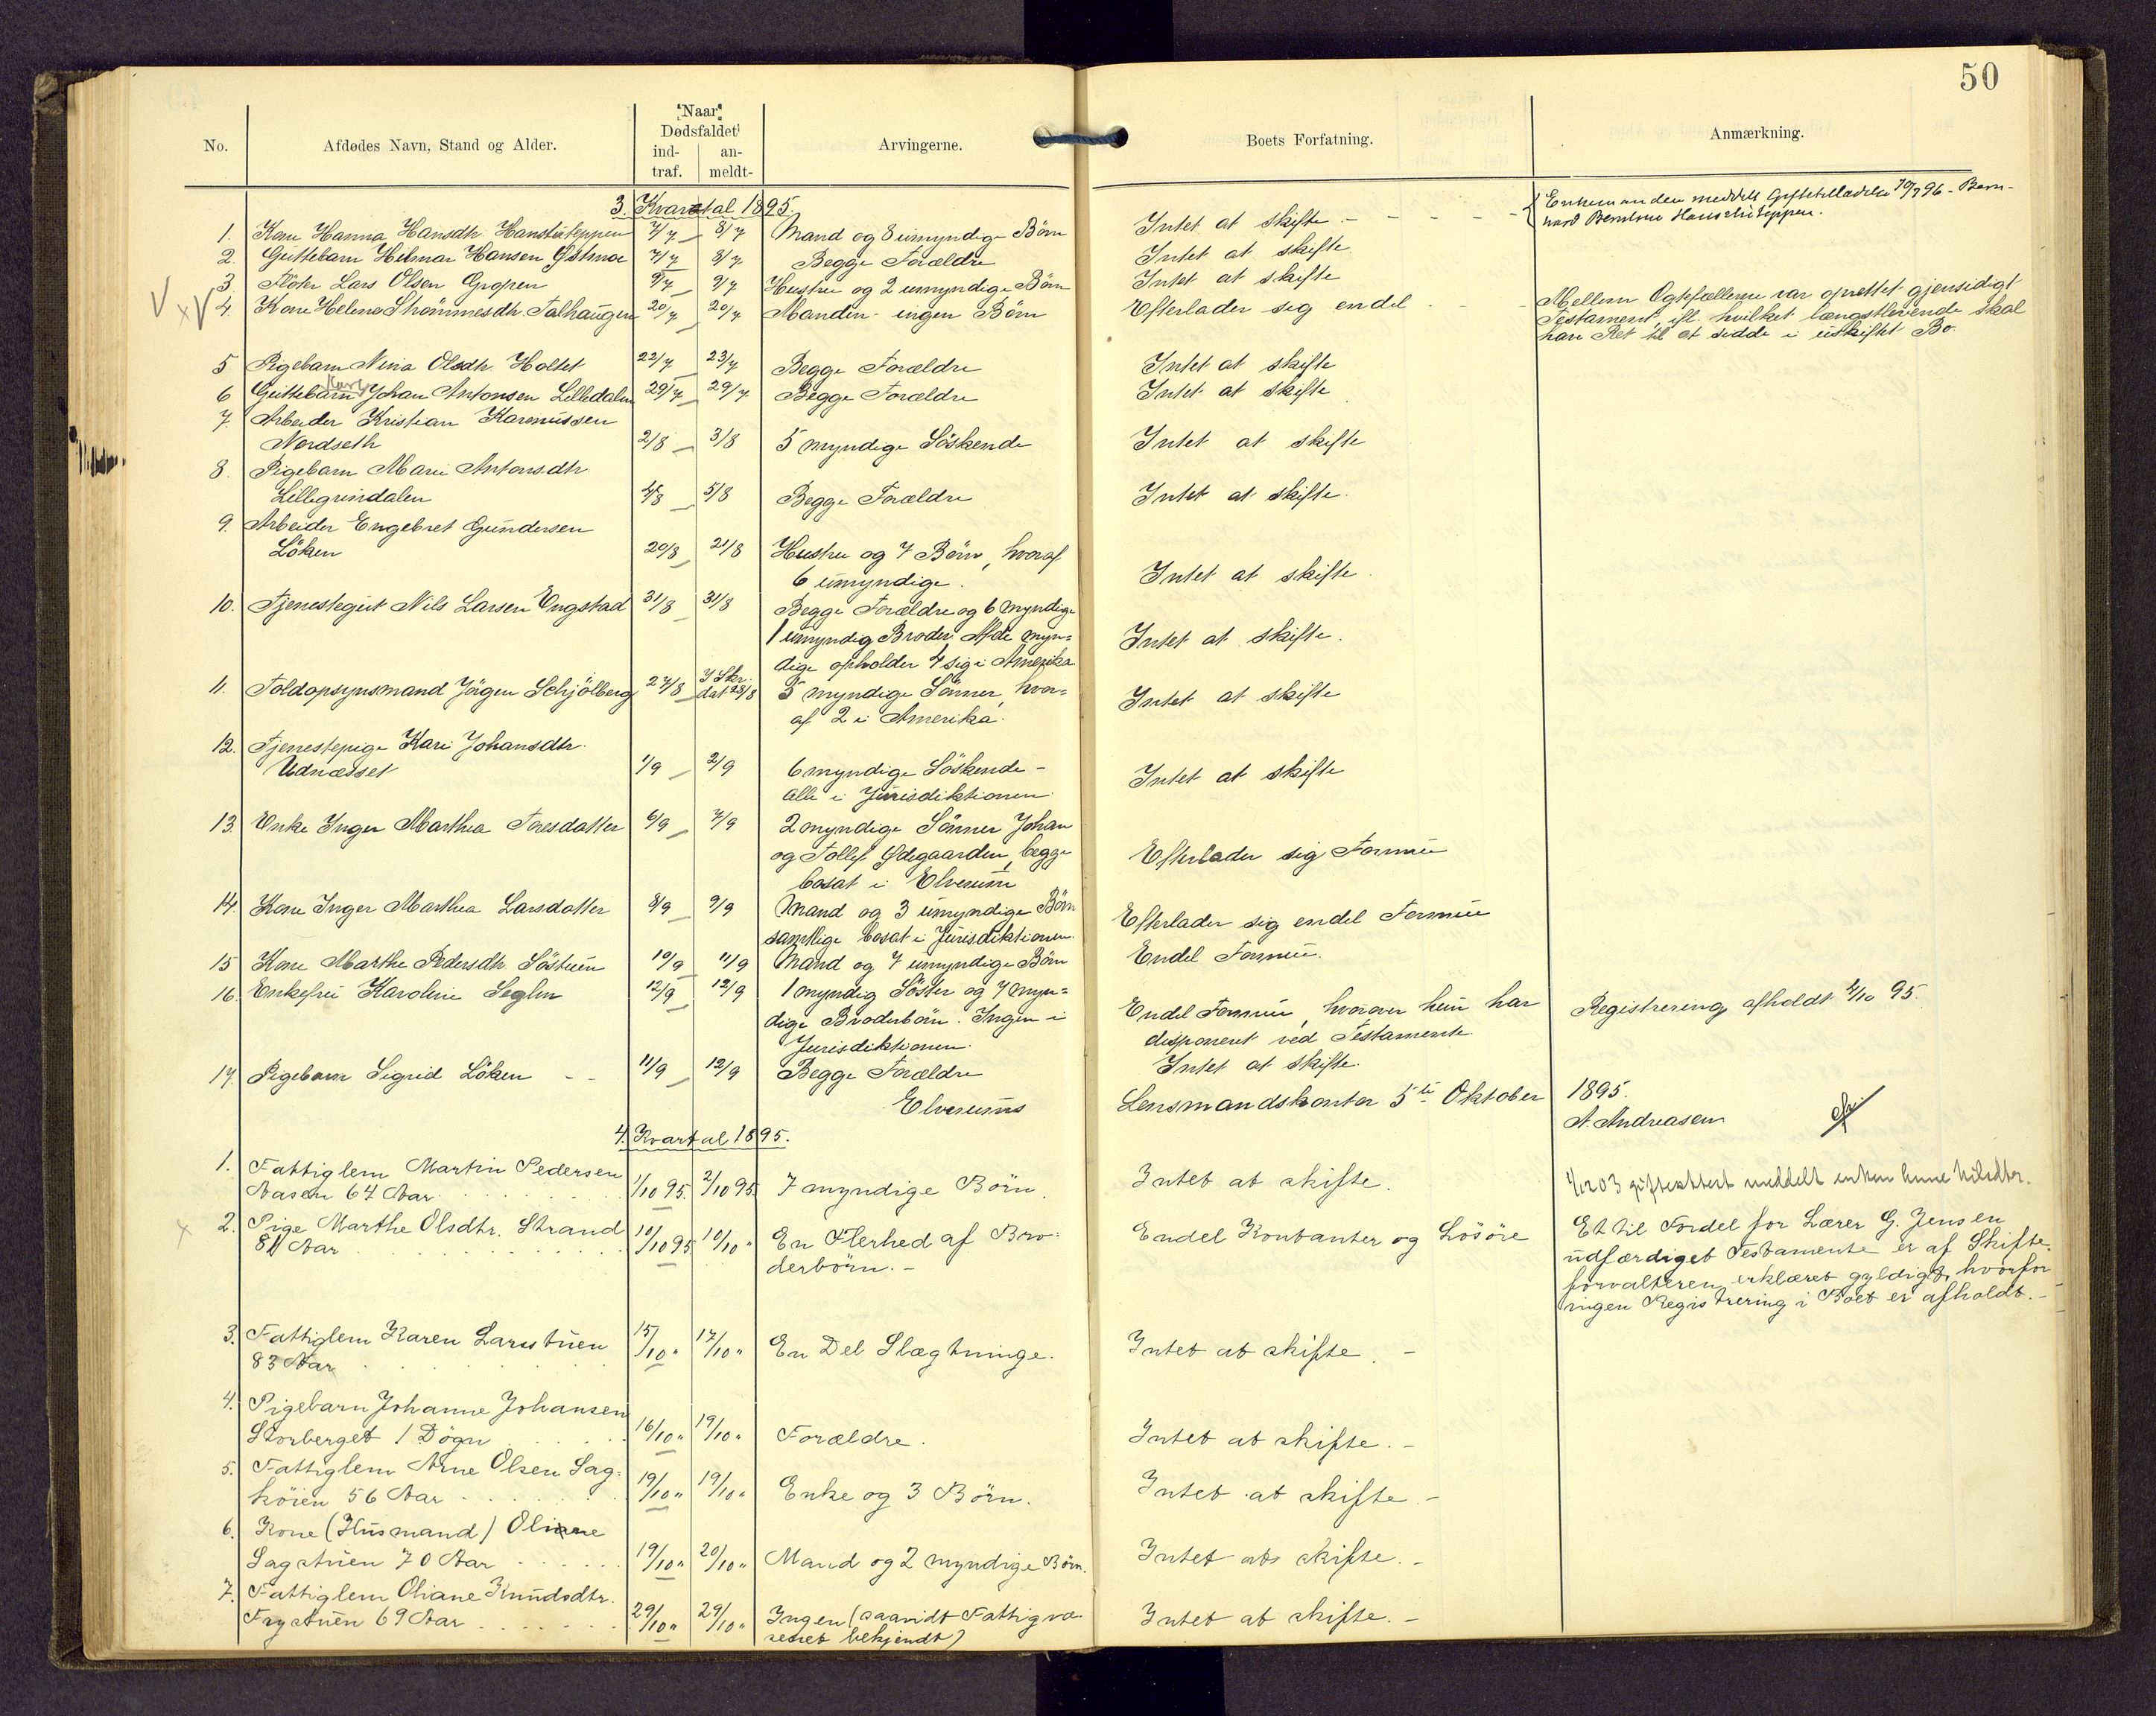 50
No. Afdødes Navn, Stand og Alder. Naar Dødsfaldet ind-traf. an-meldt- Arvingerne. Boets Forfatning. Anmærkning.
3. Kvartal 1895.
1. Kone Hanna Hansdtr. 7/7 8/7 Mand og 8 umyndige Börn Intet at skifte. - Enkemanden meddelt Giftetilladelse 96 -
2. Guttebarn Hilmar Hansen 7/7 8/7 Begge Forældre Intet at skifte
3. Flöter Lars Olsen Gropen 9/7 9/7 Hustru og 2 umyndige Börn Intet at skifte
4. Kone Helene Strömmesdtr. Talhaugen 20/7 20/7 Manden - ingen Börn Efterlader sig endel - Mellem Ægtefællerne var oprettet gjensidigt
Testament, ifl. hvilket længstlevende skal
have Ret til at sidde i uskiftet Bo
5 Pigebarn Nina Olsdtr. Holtet 22/7 23/7 Begge Forældre Intet at skifte
6 Guttebarn Karl Johan Antonsen Lilledalen 29/7 29/7 Begge Forældre Intet at skifte
7. Arbeider Kristian Rasmussen
Nordseth 2/8 3/8 5 myndige Söskende Intet at skifte
8. Pigebarn Marie Antonsdtr.
Lillegrindalen 4/8 5/8 Begge Forældre Intet at skifte.
9. Arbeider Engebret Gundersen
Löken 20/8 21/8 Hustru og 7 Börn, hvoraf
6 umyndige. Intet at skifte.
10. Tjenestegut Nils Larsen Engstad 31/8 31/8 Begge Forældre og 6 myndige
1 umyndig Broder. Af de myn-
dige opholder 4 sig i Amerika Intet at skifte.
11. Toldopsynsmand Jörgen Schjölberg 27/8 I Skr. dat 28/8 5 myndige Sönner, hvor-
af 2 i Amerika. Intet at skifte
12. Tjenestepige Kari Johansdtr.
Udnæsset 1/9 2/9 6 myndige Söskende -
alle i Jurisdiktionen. Intet at skifte
13. Enke Inger Marthea Toresdatter 6/9 7/9 2 myndige Sönner Johan
og Tollef Ödegaarden, begge
bosat i Elverum Efterlader sig Formue
14. Kone Inger Marthea Larsdatter 8/9 9/9 Mand og 3 umyndige Börn
samtlige bosat i Jurisdiktionen. Efterlader sig endel Formue
15 Kone Marthe Pedersdtr. Söstuen 10/9 11/9 Mand og 7 umyndige Börn Endel Formue.
16. Enkefru Karoline Seglm 12/9 12/9 1 myndig Söster og 7 myn-
dige Broderbörn. Ingen i
Jurisdiktionen. Endel Formue, hvorover hun har
disponeret ved Testamente. Registrering afholdt 2/10 95.
17. Pigebarn Sigrid Löken - - 11/9 12/9 Begge Forældre Intet at skifte.
Elverums Lensmandskontor 5te Oktober 1895.
A. Andreasen
4. Kvartal 1895.
1. Fattiglem Martin Pedersen
Aasen 64 Aar. 1/10 95. 2/10 95 7 myndige Börn. Intet at skifte. 03 giftesattest meddelt enken Anne Nilsdtr.
2. Pige Marthe Olsdtr. Strand
81 Aar 10/10 95 10/10 " En Flerhed af Bro-
derbörn. - Endel Kontanter og Lösöre Et til Fordel for Lærer G. Jensen
udfærdiget Testamente er af Skifte-
forvalteren erklæret gyldigt, hvorfor
ingen Registrering i Boet er afholdt. -
3. Fattiglem Karen Larsstuen
83 Aar 15/10 " 17/10 " En Del Slægtninge. Intet at skifte. -
4. Pigebarn Johanne Johansen
Storberget 1 Dögn 16/10 " 19/10 " Forældre. Intet at skifte. -
5. Fattiglem Arne Olsen Sag-
köien 56 Aar 19/10 " 19/10 " Enke og 3 Börn. Intet at skifte. -
6. Kone (Husmand) Oliane
Sagstuen 70 Aar 19/10 " 20/10 " Mand og 2 myndige Börn. Intet at skifte. -
7. Fattiglem Oliane Knudsdtr.
Frystuen 69 Aar 29/10 " 29/10 " Ingen (saavidt Fattigvæ-
senet bekjendt) Intet at skifte. -